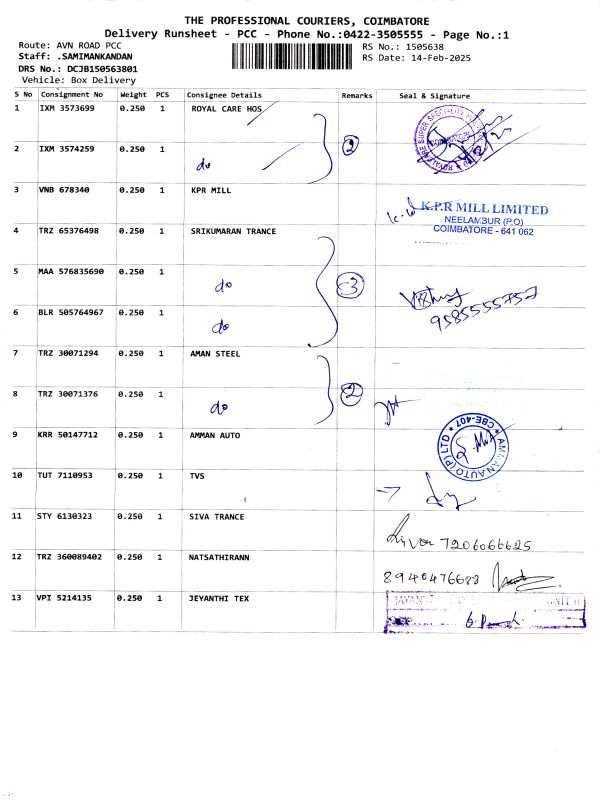 THE PROFESSIONAL COURIERS, COIMBATORE
Delivery Runsheet - PCC - Phone No.:0422-3505555 - Page No.:1
Route: AVN ROAD PCC
Staff: .SAMIMANKANDAN
DRS No.: DCJB150563801
Vehicle: Box Delivery
RS No.: 1505638
RS Date: 14-Feb-2025
S No Consignment No Weight PCS Consignee Details Remarks Seal & Signature
1 IXM 3573699 0.250 1 ROYAL CARE HOS
2 IXM 3574259 0.250 1 do 2
3 VNB 678340 0.250 1 KPR MILL
K.P.R MILL LIMITED
NEELAMBUR (P.O)
COIMBATORE - 641 062
4 TRZ 65376498 0.250 1 SRIKUMARAN TRANCE
5 MAA 576835690 0.250 1 do 3
9585555757
6 BLR 505764967 0.250 1 do
7 TRZ 30071294 0.250 1 AMAN STEEL
8 TRZ 30071376 0.250 1 do 2
9 KRR 50147712 0.250 1 AMMAN AUTO
AMMAN AUTO (P) LTD * CBE-407 *
10 TUT 7110953 0.250 1 TVS
11 STY 6130323 0.250 1 SIVA TRANCE
7206066625
12 TRZ 360089402 0.250 1 NATSATHIRANN
8940476683
13 VPI 5214135 0.250 1 JEYANTHI TEX